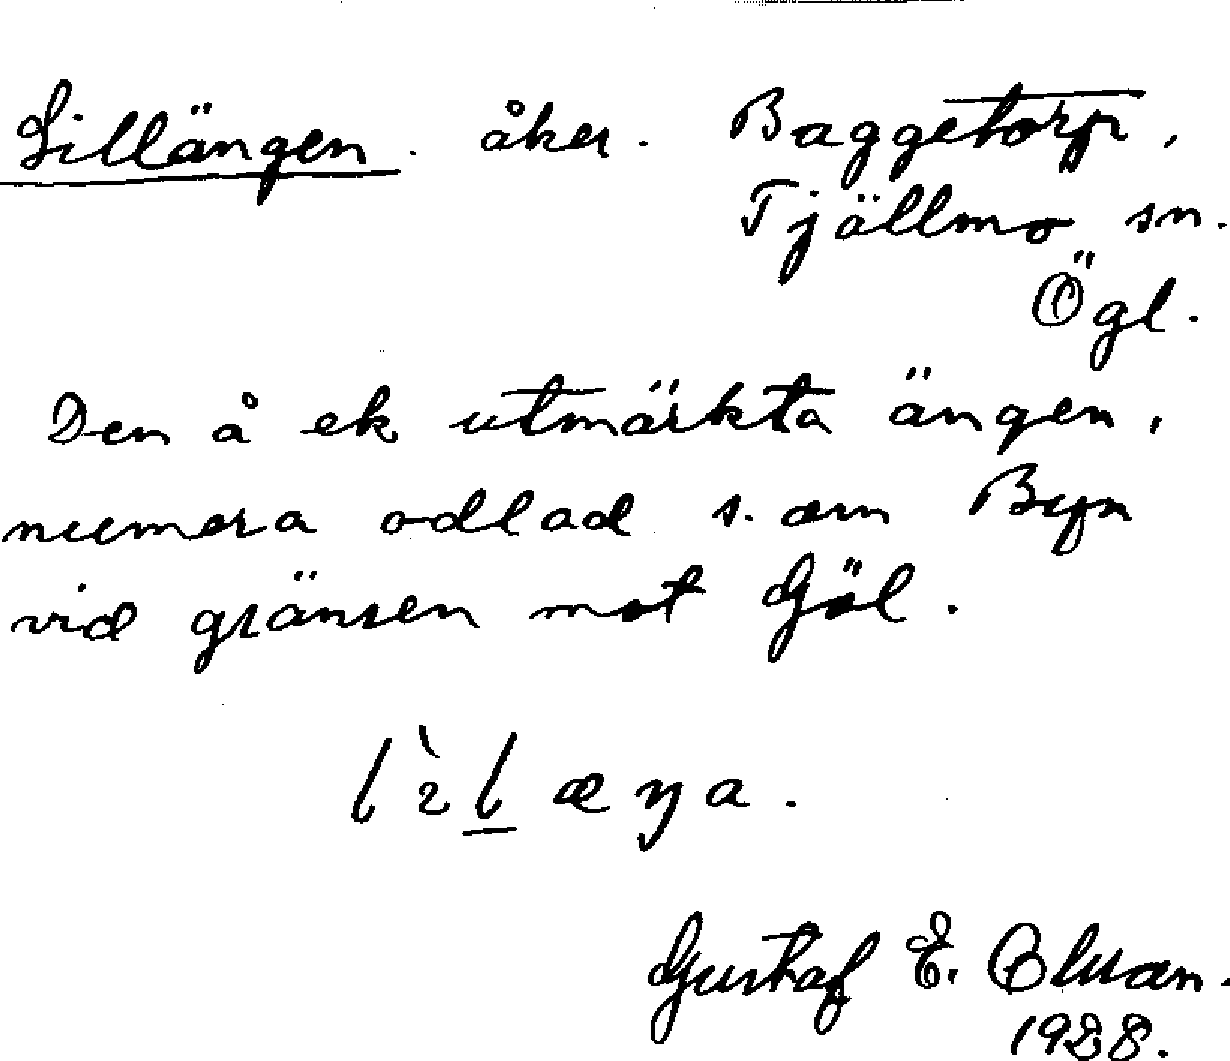 Lillängen. åker. Baggetorp,
Tjällmo sn.
Ögl.
Den å ek utmärkta ängen,
numera odlad s. om Byn
vid gränsen mot Göl.
Gustaf E.
1928.